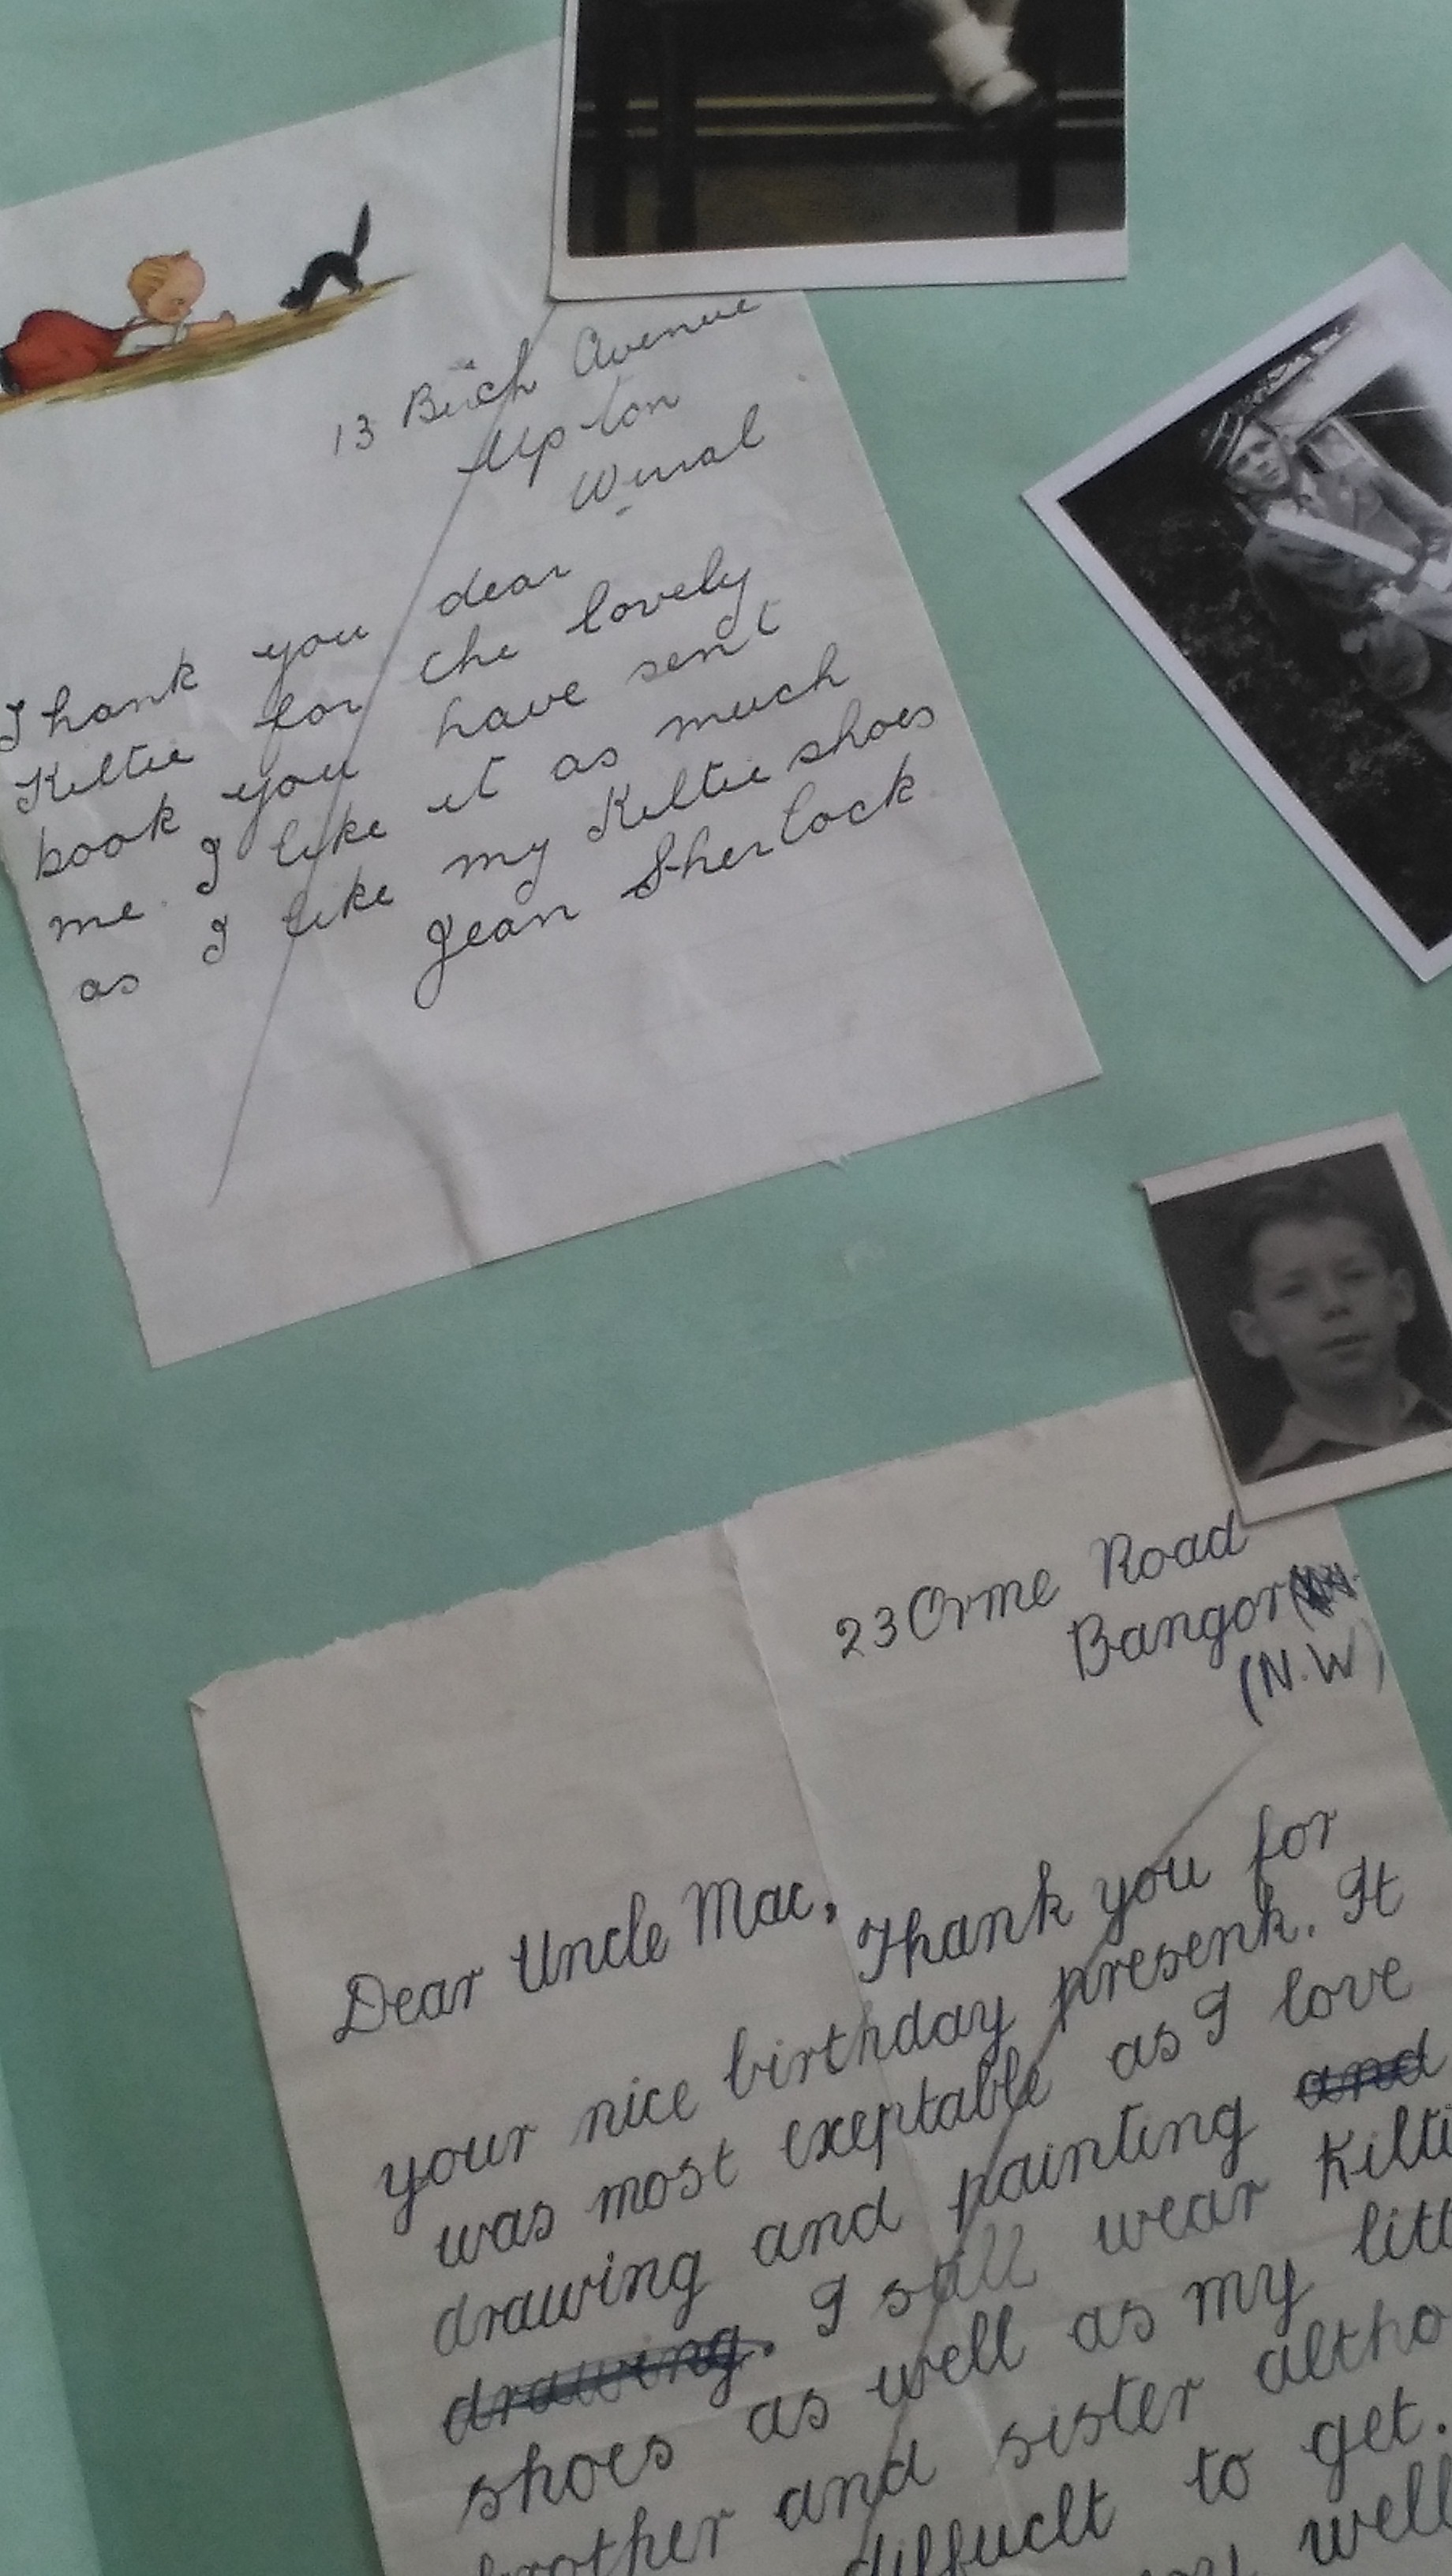 13 Birch Avenue
Upton
Wirral
Thank you dear
Kiltie for the lovely
book you have sent
me. I like it as much
as I like my Kiltie shoes
Jean Sherlock
23 Orme Road
Bangor
(N.W)
Dear Uncle Mac,
Thank you for
your nice birthday present. It
was most exeptable as I love
drawing and painting and
drawing. I still wear Kilti
shoes as well as my litt
brother and sister altho
diffuclt to get.
well